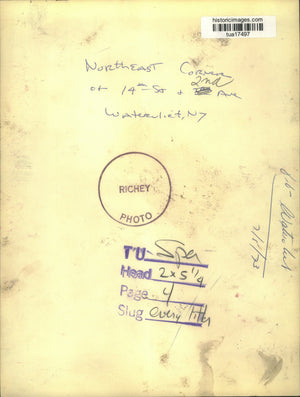 historicimages.com
tua17497
NORTHEAST CORNER
of 14th St + 2nd Ave
WATERVLIET, NY
RICHEY
PHOTO
T'U
Head 2 x 5 1/9
Page 4
Slug every